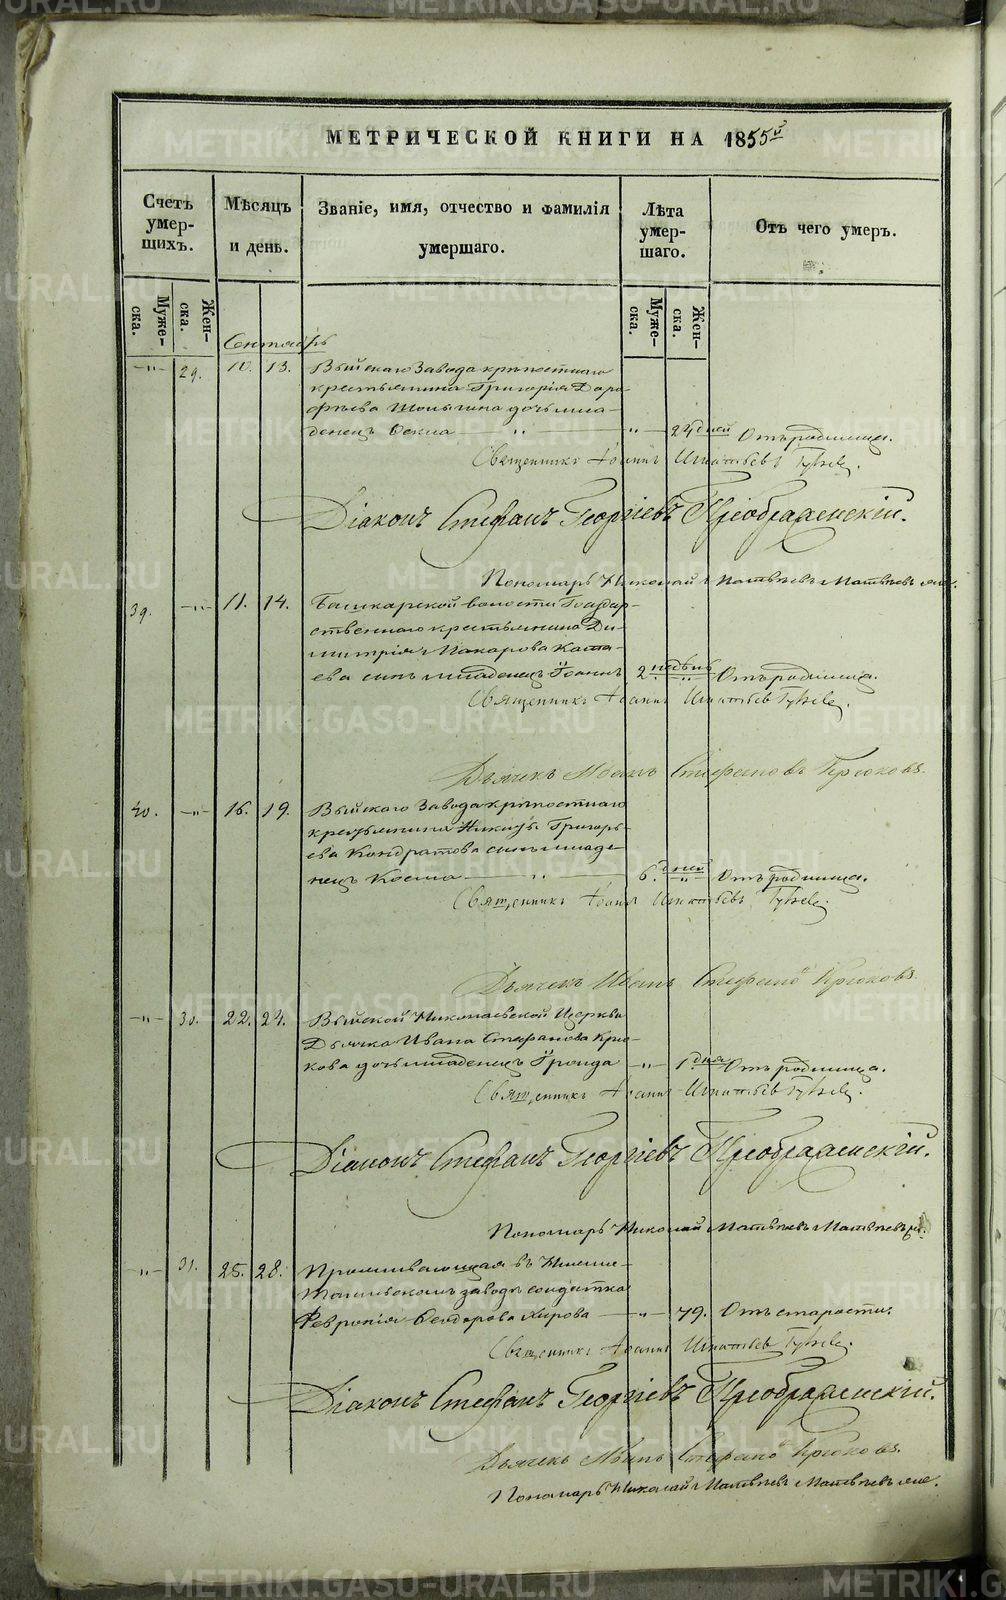 МЕТРИЧЕСКОЙ КНИГИ НА 1855й
Счетъ умерщихъ.
Мѣсяцъ и день.
Званіе, имя, отчество и фамилія умершаго.
Лѣта умершаго.
Отъ чего умеръ.
Мужеска.
Женска.
Мужеска.
Женска.
Сентябрь
-„- 29. 10. 13. Выйскаго Завода крѣпостнаго
крестьянина Григорія Доро-
фѣева дочь мла-
денецъ Фекла -„- 24 дней Отъ родимца.
Священникъ Іоаннъ Игнатьевъ
Діаконъ Стефанъ Георгіевъ Преображенскій.
Пономарь Николай Матвѣевъ Матвѣевъ
39. -„- 11. 14. Башкарской волости Государ-
ственнаго крестьянина Ди-
митрія Макарова Ката-
ева сынъ младенецъ Іоаннъ 2 недѣль „ Отъ родимца.
Священникъ Іоаннъ Игнатьевъ
Дьячекъ Иванъ Стефановъ Крюковъ.
40. -„- 16. 19. Выйскаго Завода крѣпостнаго
крестьянина Никиты Григорь-
ева Кондратова сынъ младе-
нецъ Косма „ 6. дней „ Отъ родимца.
Священникъ Іоаннъ Игнатьевъ
Дьячекъ Иванъ Стефановъ Крюковъ.
-„- 30. 22. 24. Выйской Николаевской Церкви
Дьячка Ивана Стефанова Крю-
кова дочь младенецъ Ираида -„- 1 дня Отъ родимца.
Священникъ Іоаннъ Игнатьевъ
Діаконъ Стефанъ Георгіевъ Преображенскій.
Пономарь Николай Матвѣевъ Матвѣевъ
-„- 31. 25. 28. Проживающая въ Нижне-
Тагильскомъ заводѣ солдатка
Февронія Феодорова -„- 79. Отъ старости.
Священникъ Іоаннъ Игнатьевъ
Діаконъ Стефанъ Георгіевъ Преображенскій.
Дьячекъ Иванъ Стефановъ Крюковъ.
Пономарь Николай Матвѣевъ Матвѣевъ
METRIKI.GASO-URAL.RU